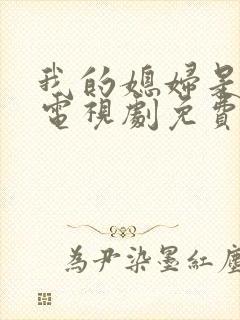 我的媳婦是
電視劇免費
為尹染墨紅塵